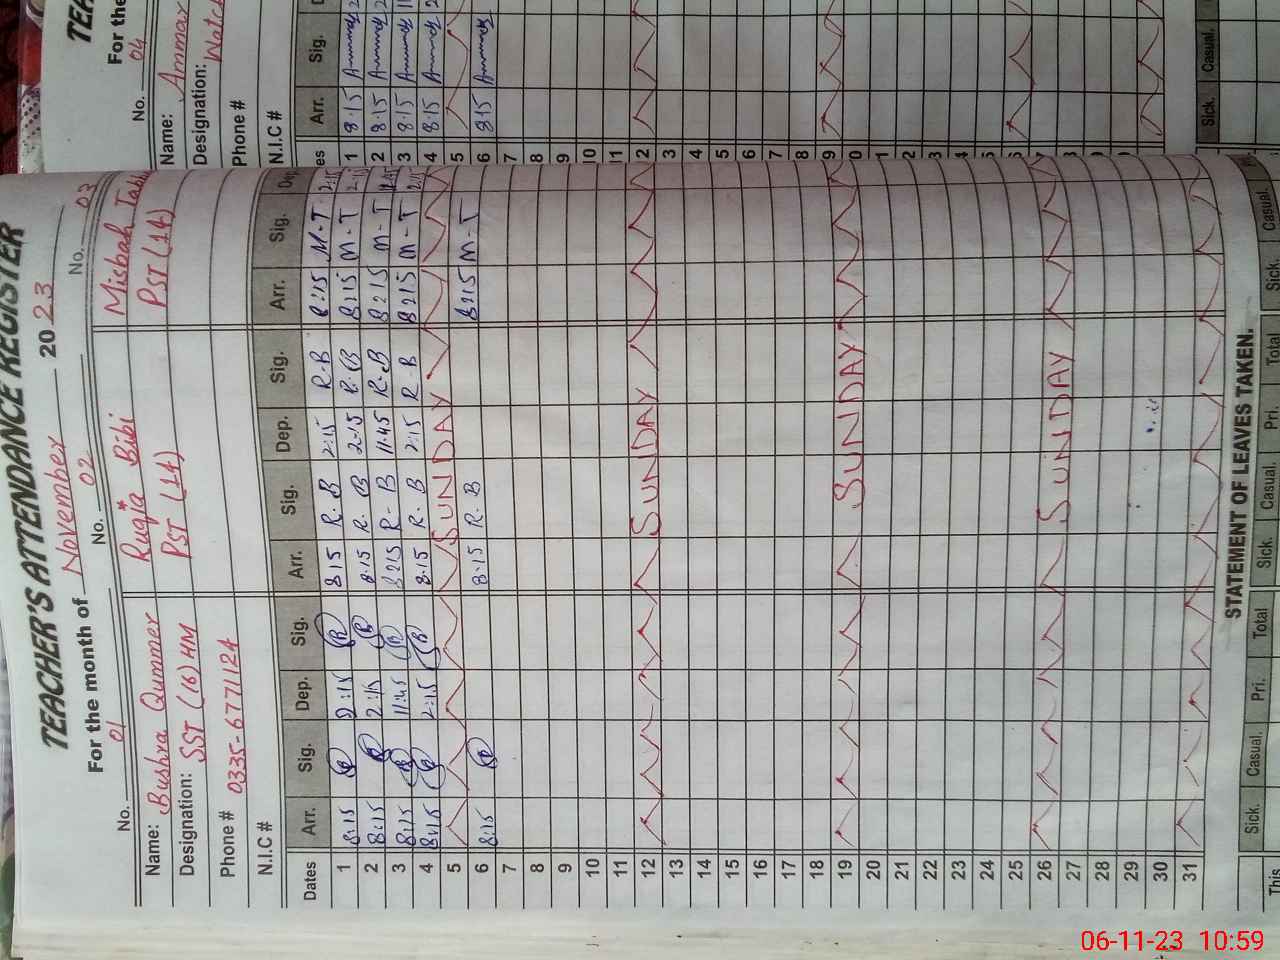 TEACHER'S ATTENDANCE REGISTER
For the month of November 2023
No. 01 No. 02 No. 03
Name: Bushra Qummer Ruqia Bibi Misbah
Designation: SST (16) HM PST (14) PST (14)
Phone # 0335-6771124
N.I.C #
Dates Arr. Sig. Dep. Sig. Arr. Sig. Dep. Sig. Arr. Sig. Dep.
1 8:15 2:15 8 15 R.B 2:15 R.B 8:15 M.T 2:15
2 8:15 2:15 8.15 R.B 2.15 R.B 8:15 M-T 2:15
3 8:15 11:45 8:15 R-B 11:45 R.B 8:15 M-T 11:45
4 8:15 2:15 8.15 R.B 2:15 R.B 8:15 M-T 2:15
5 SUNDAY
6 8:15 8.15 R.B 8:15 M-T
7
8
9
10
11
12 SUNDAY
13
14
15
16
17
18
19 SUNDAY
20
21
22
23
24
25
26 SUNDAY
27
28
29
30
31
STATEMENT OF LEAVES TAKEN.
Sick. Casual. Pri. Total Sick. Casual. Pri. Total Sick. Casual.
This
For the
No. 04
Name: Ammar
Designation: Watch
Phone #
N.I.C #
Arr. Sig.
1 8.15
2 8.15
3 8.15
4 8.15
5
6 8 15
7
8
9
10
11
Sick. Casual.
06-11-23 10:59